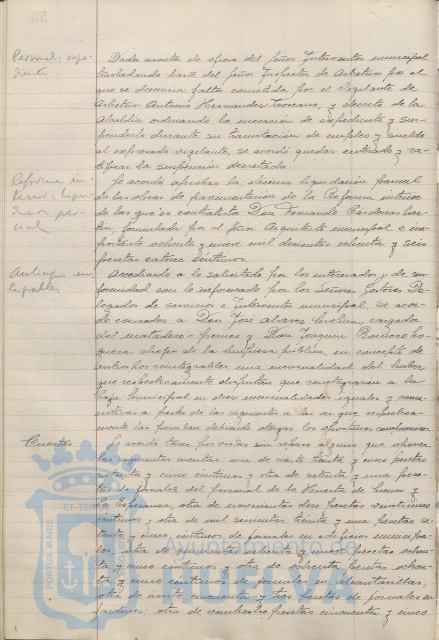 Personal, expe-
diente
Dada cuenta de oficio del señor Interventor municipal
trasladando parte del señor Inspector de Arbitrios por el
que se denuncia falta cometida por el Vigilante de
Arbitrios Antonio Hernandez Troncano, y decreto de la
Alcaldia ordenando la incoación de expediente y sus-
penderlo durante su tramitación de empleo y sueldo
al expresado vigilante, se acordó quedar enterado y ra-
tificar la suspensión decretada.
Reforma in-
terior: liqui-
dacion par-
cial
Se acordó aprobar la décima liquidación parcial
de las obras de pavimentación de la Reforma interior
de las que es contratista Don Fernando Cárdenas
formulada por el señor Arquitecto municipal e im-
portante ochenta y nueve mil doscientas setenta y seis
pesetas catorce céntimos.
Anticipos rein-
tegrables
Accediendo a lo solicitado por los interesados y de con-
formidad con lo informado por los Señores Gestores De-
legados de servicios e Interventor municipal, se acor-
dó conceder a Don José Alvarez Molina, cargador
del matadero y Don Joaquin Romero No-
guera, chofer de la limpieza pública, en concepto de
anticipos reintegrables una mensualidad del haber
que respectivamente disfrutan que reintegraran a la
Caja municipal en diez mensualidades iguales y conse-
cutivas a partir de las siguientes a las en que respectiva-
mente las perciban debiendo otorgar los oportunos
Cuentas
Se acordó
las siguientes cuentas: una de veinte treinta y cinco pesetas
setenta y cinco céntimos; otra de setenta y una pese-
tas de jornales del personal de la
otra de novecientas doce pesetas veinticinco
céntimos; otra de mil seiscientas treinta y una pesetas se-
tenta y cinco céntimos de jornales en edificios municipa-
les; otra de
ta y cinco céntimos y otra de sesenta pesetas ochen-
ta y cinco céntimos de jornales en alcantarillas;
otra de ciento cincuenta y tres pesetas de jornales en
jardines; otra de veintiseis pesetas cincuenta y cinco
PORTUS MAGNUS
ET TERRA
Ayuntamiento de